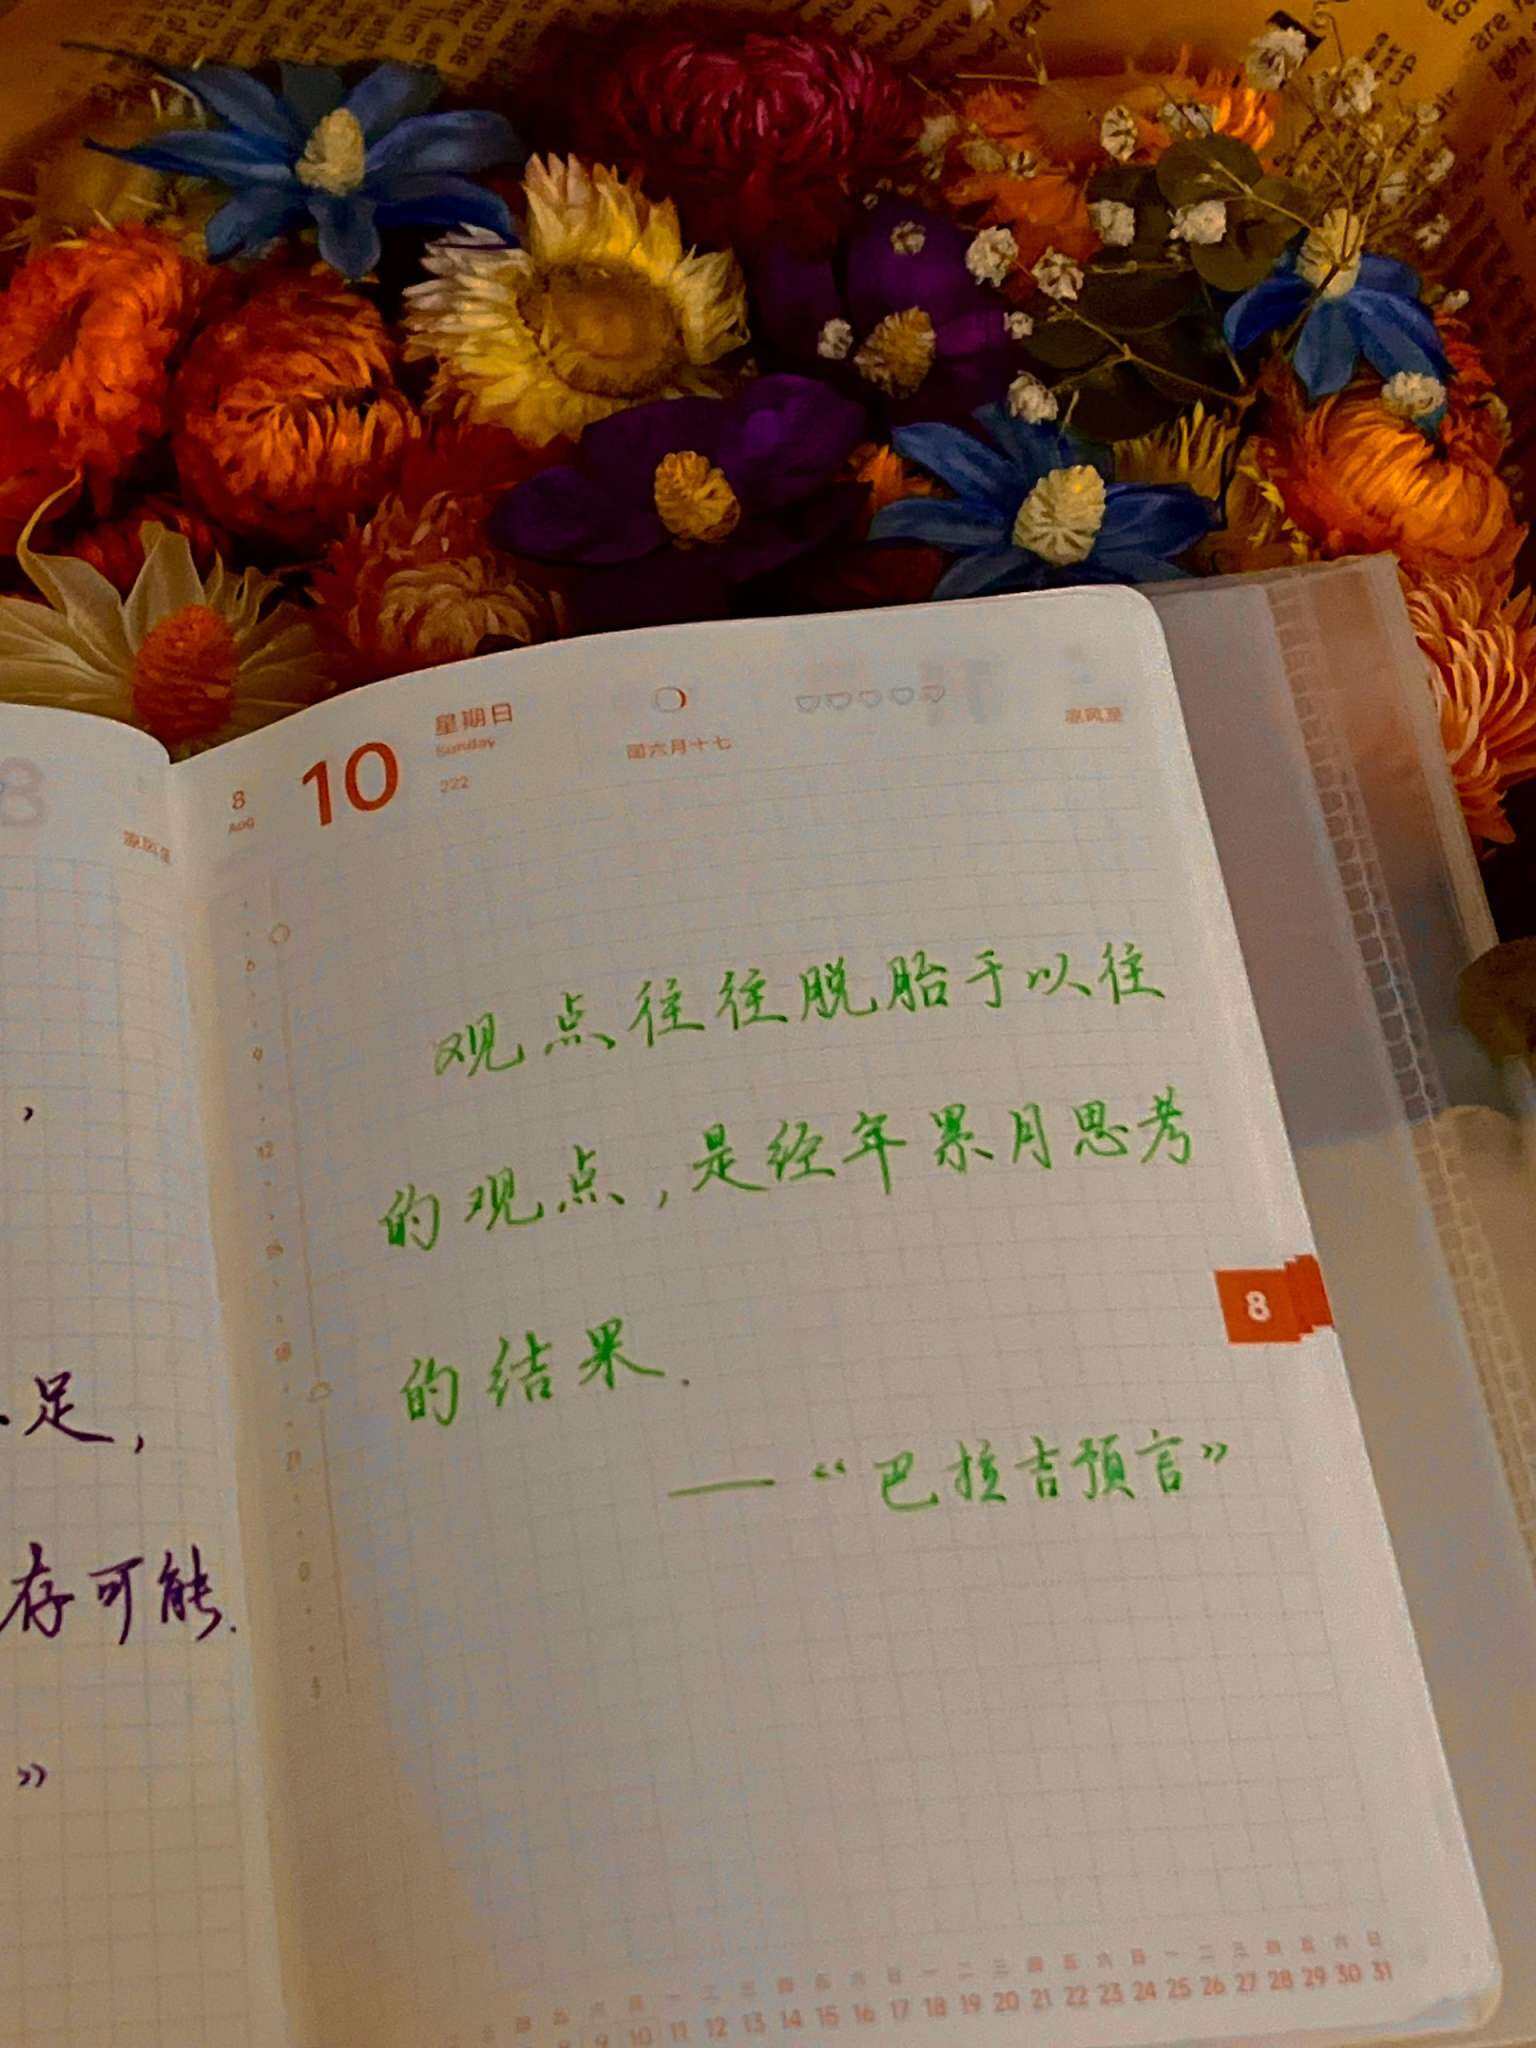 8
AUG
10
星期日
Sunday
222
闰六月十七
凉风至
凉风至
观点往往脱胎于以往
的观点,是经年累月思考
的结果.
——“巴拉吉预言”
8
,
足,
存可能.
”
四 五 六 日 一 二 三 四 五 六 日 一 二 三 四 五 六 日
9 10 11 12 13 14 15 16 17 18 19 20 21 22 23 24 25 26 27 28 29 30 31